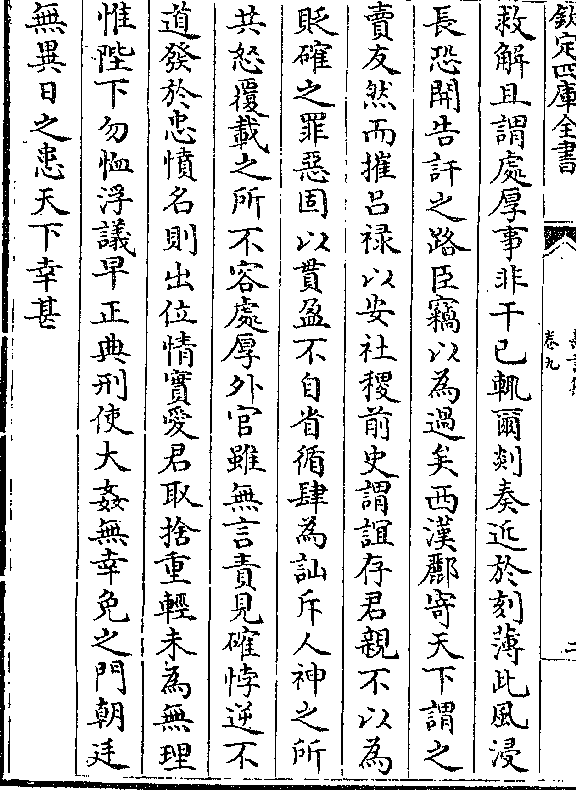 欽定四庫全書
卷九
二
救解且謂處厚事非干已輒爾剡奏近於刻薄此風浸
長恐開告訐之路臣竊以為過矣西漢酈寄天下謂之
賣友然而摧呂禄以安社稷前史謂誼存君親不以為
貶確之罪惡固以貫盈不自省循肆為訕斥人神之所
共怒覆載之所不容處厚外官雖無言責見確悖逆不
道發於忠憤名則出位情實愛君取捨重輕未為無理
惟陛下勿恤浮議早正典刑使大姦無幸免之門朝廷
無異日之患天下幸甚